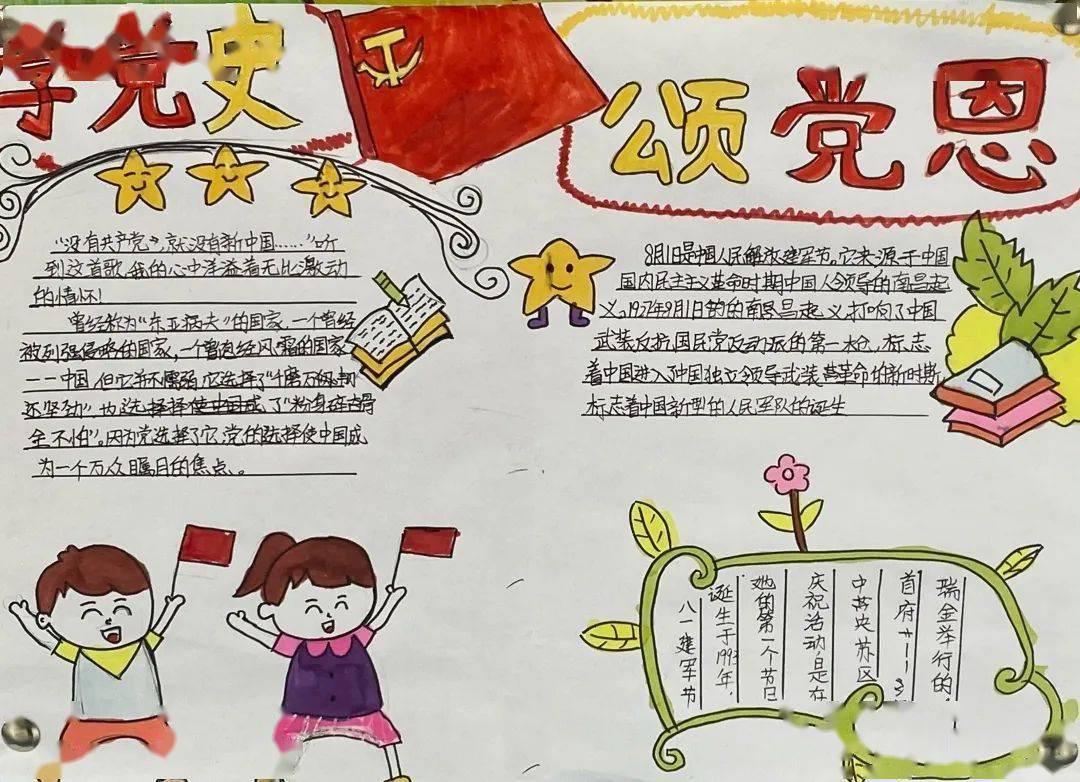 学党史
颂党恩
“没有共产党，就没有新中国……”听
到这首歌，我的心中洋溢着无比激动
的情怀！
曾经称为“东亚病夫”的国家，一个曾经
被列强侵略的国家，一个曾饱经风霜的国家
——中国，但它并不懦弱，它选择了“千磨万
还坚劲”也选择
全不怕”。因为党选择了它，党的选择使中国成
为一个万众瞩目的焦点。
8月1日是中国人民解放建军节。它来源于中国
国内民主主义革命时期中国人领导的南昌起
义。
武装反抗国民党反动派的第一枪，标志
着中国进入了中国独立领导武装革命的新时期
标志着中国新型的人民军队的诞生
八一建军节
诞生于1993年，
她的第一个节日
庆祝活动是在
中央苏区
首府
瑞金举行的